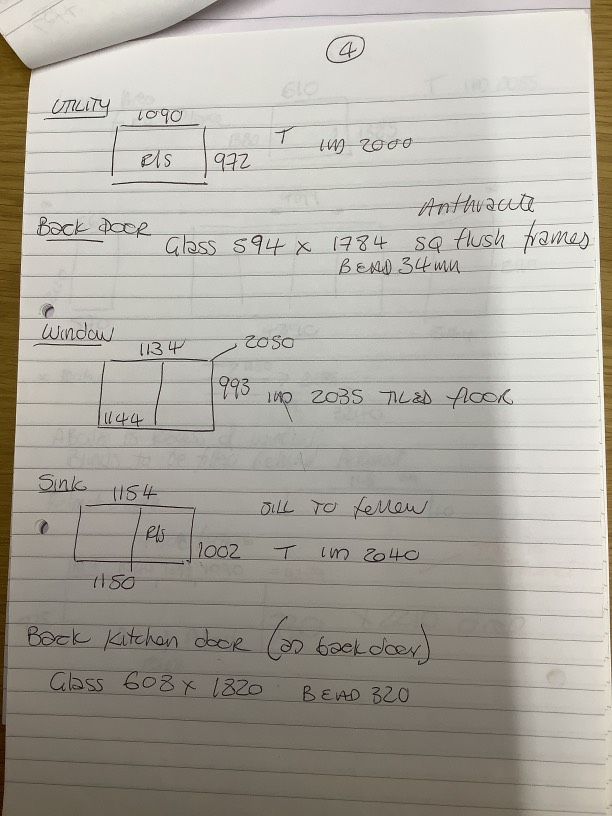 4
UTILITY
1090
R/S 972 T IWD 2000
Anthracite
BACK DOOR
Glass 594 x 1784 SQ flush frames
BEAD 34mm
Window
1134 2050
993 IWD 2035 TILED FLOOR
1144
Sink
1154 SILL TO follow
R/S
1002 T IWD 2040
1150
Back kitchen door (as back door)
Glass 608 x 1820 BEAD 320